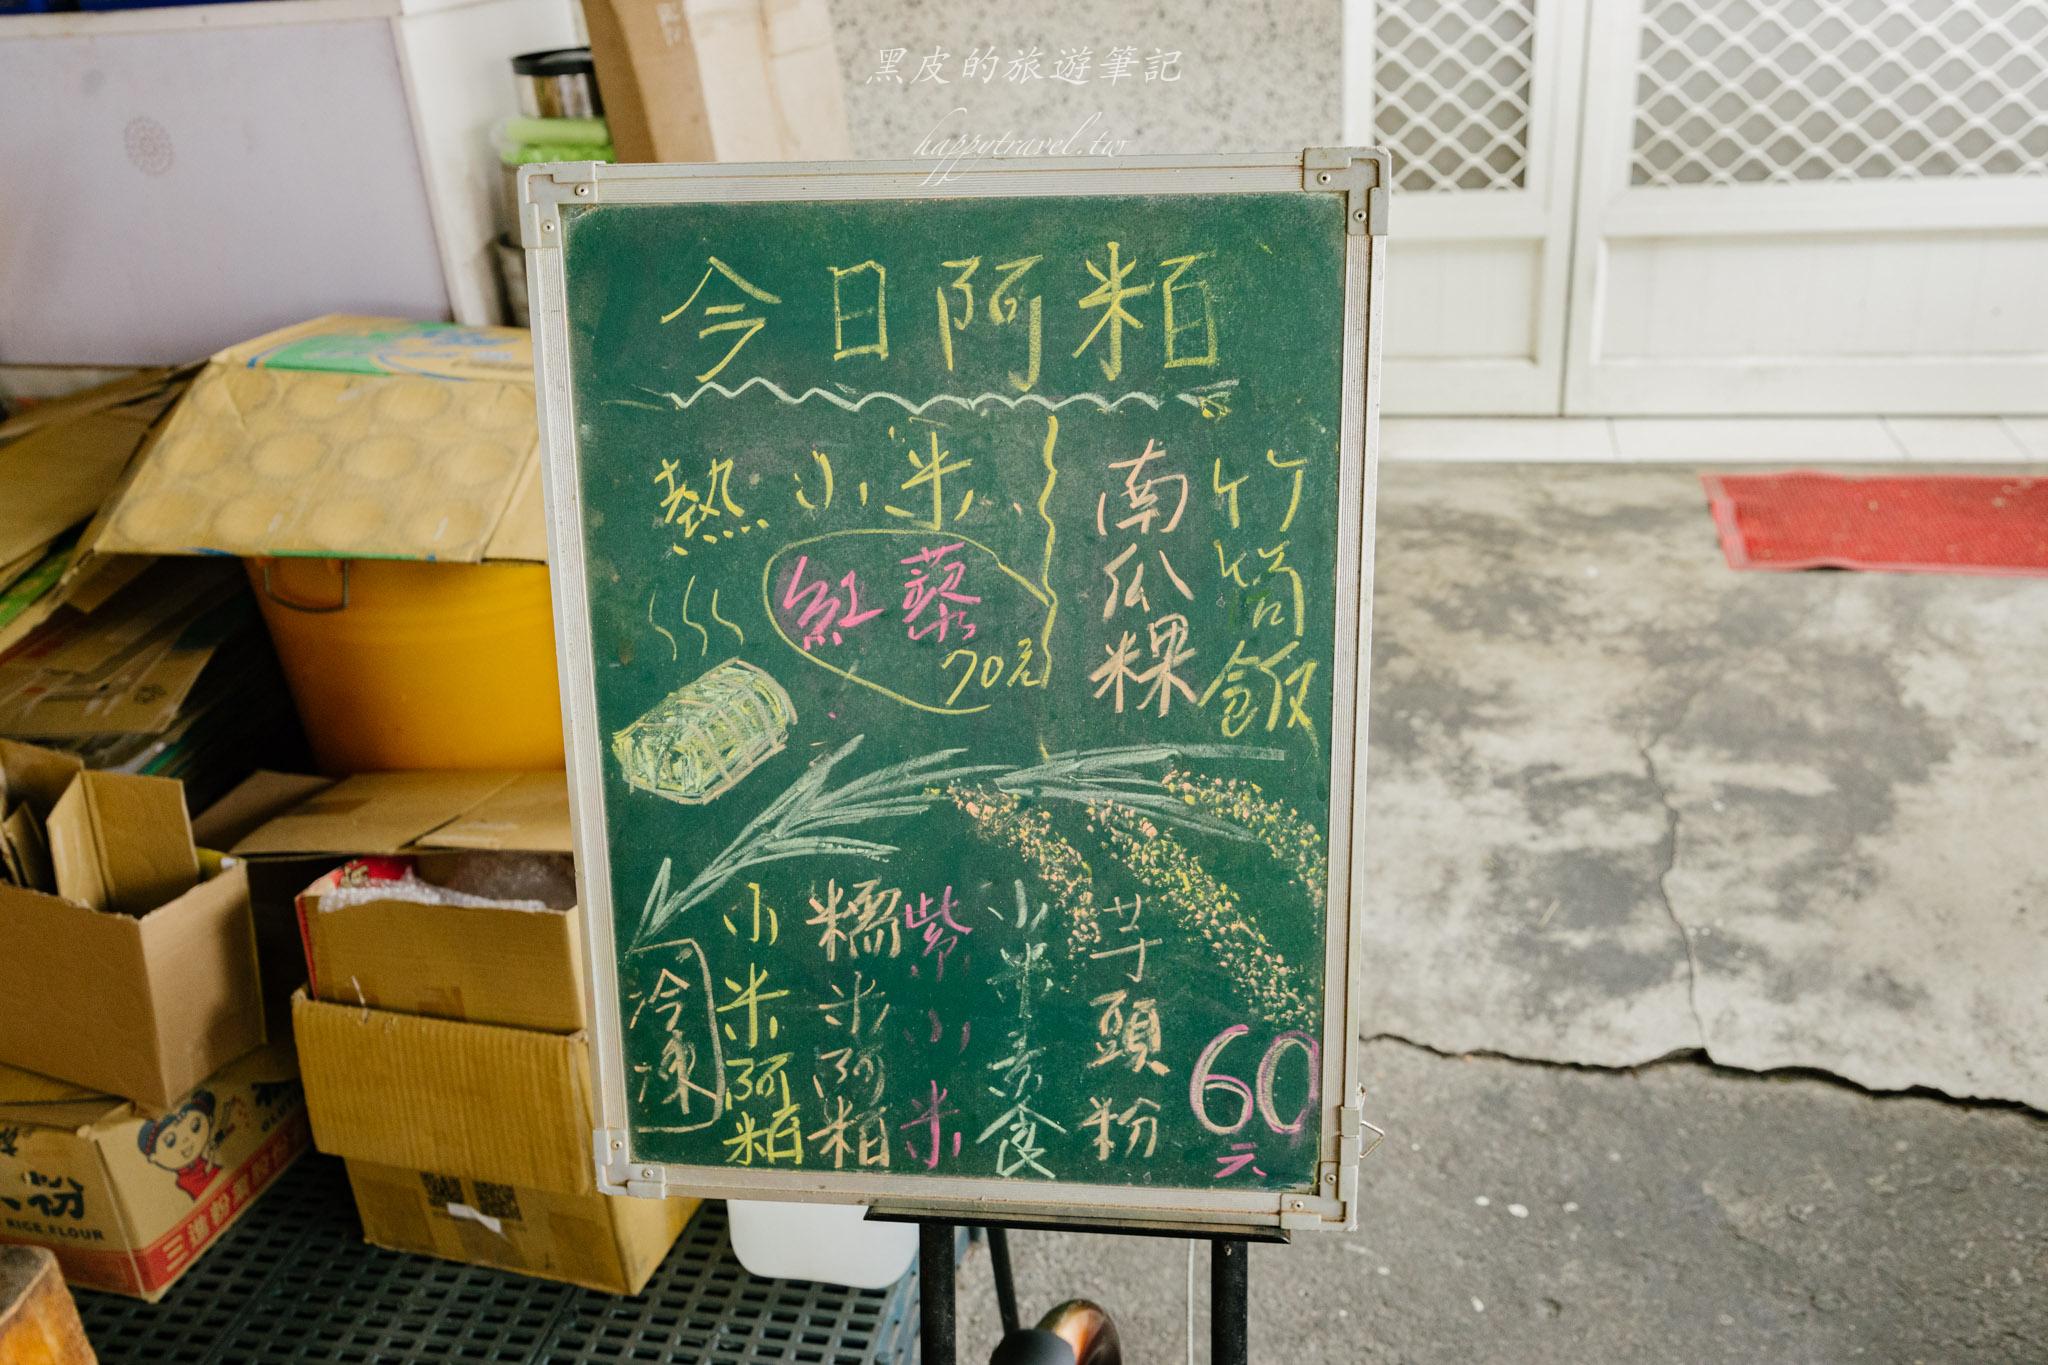 黑皮的旅遊筆記
happytravel.tw
今日阿粨
熱 小米
紅藜
70元
南瓜粿
竹筒飯
冷凍
小米阿粨
糯米阿粨
紫小米
小米素食
芋頭粉
60元
粉
RICE FLOUR
三進粉業股份有